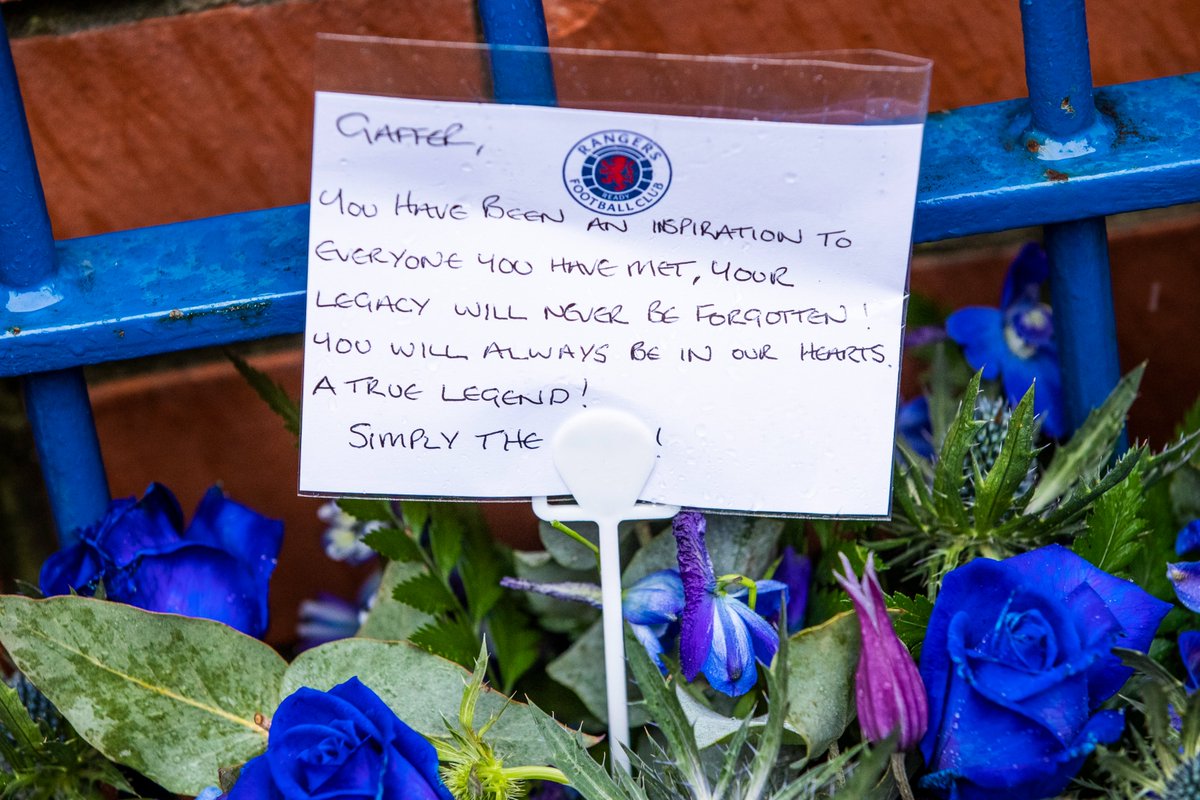 GAFFER,
RANGERS
FOOTBALL CLUB
READY
YOU HAVE BEEN AN INSPIRATION TO
EVERYONE YOU HAVE MET, YOUR
LEGACY WILL NEVER BE FORGOTTEN!
YOU WILL ALWAYS BE IN OUR HEARTS.
A TRUE LEGEND!
SIMPLY THE !